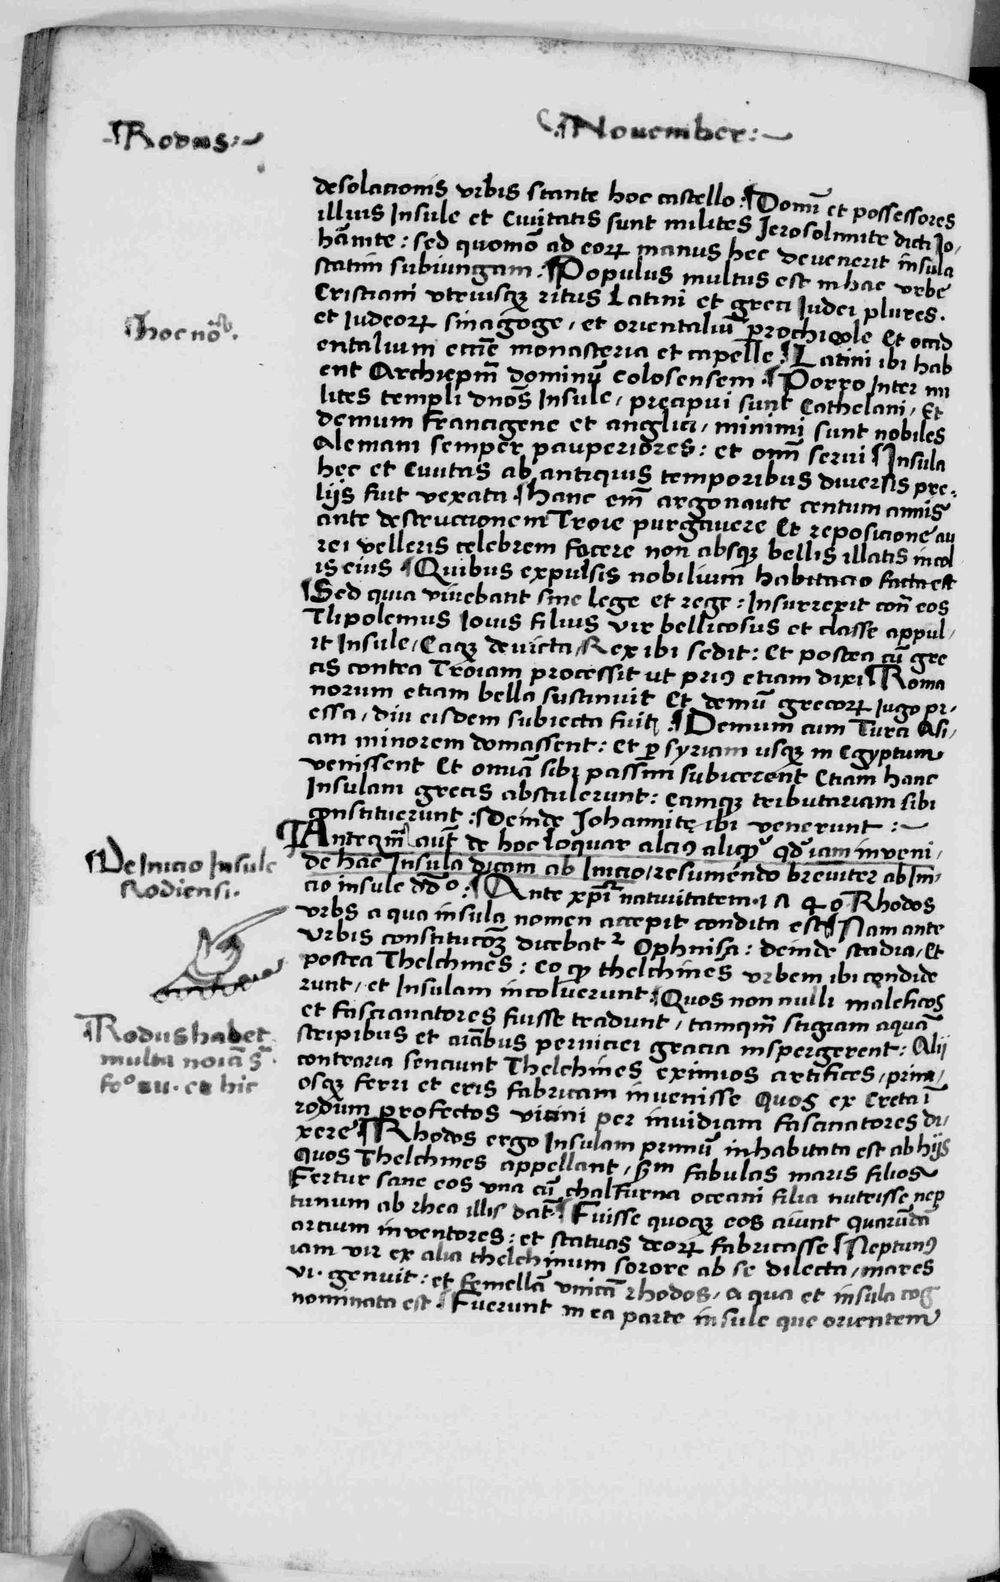 Rodus:~
¶November:~
desolacionis urbis stante hoc castello: ¶Domī et possessores
illius Insule et Civitatis sunt milites Jerosolimite dicti Jo,
hānite: sed quomō ad eorꝝ manus hec devenerit insula
statim subiungam: ¶Populus multus est in hac urbe
Cristiani utriusqꝫ ritus Latini et greci Iudei plures.
¶hoc noᵗᵇ.
et Iudeorꝝ sinagoge, et orientaliū et occid
entalium eccīe monasteria et capelle. ¶Latini ibi hab
ent Archiepm̄ dominū colosensem. ¶Porro Inter mi
lites templi dnōs Insule, precipui sunt Cathelani, Et
demum francigene et anglici, minimi sunt nobiles
Alemani semper pauperiores: et om̄ servi ¶Insula
hec et Civitas ab antiquis temporibus diversis pre,
lijs fuit vexata ¶hanc em̄ argonaute centum annis
ante destructionem Troie purgavere Et reposicione au
rei velleris celebrem facere non absqꝫ bellis illatis incol
is eius ¶Quibus expulsis nobilium habitacio facta est
¶Sed quia vivebant sine lege et rege: Insurrexit con̄ eos
Tlipolemus Iovis filius vir bellicosus et classe appul,
it Insule, Eaqꝫ devicta, Rex ibi sedit: Et postea cū gre
cis contra Troiam processit ut priꝰ etiam dixi ¶Roma
norum etiam bella sustinuit Et demū grecorꝝ iugo pr,
essa, diu eisdem subiecta fuit. ¶Demum cum Turci Asi,
am minorem domassent: Et ꝑ syriam usqꝫ in Egyptum
venissent Et omnia sibi passim subicerent Etiam hanc
Insulam grecis abstulerunt: eamqꝫ tributariam sibi
constituerunt: ¶Deinde Iohannite ibi venerunt:~
¶Anteqm̄ aut̄ de hoc loquar alciꝰ aliqꝫ qd̄ iam inveni,
¶De Inicio Insule
Rodiensi.
de hac Insula dicam ab Inicio, resumendo breviter ab Ini
cio insule dd̄o. ¶Ante xpī nativitatem. Rhodos
urbs a qua insula nomen accepit condita est ¶Nam ante
urbis constitucōꝫ dicebatʳ Ophiusa: deinde stadia, Et
postea Thelchines: eo qꝫ thelchines urbem ibi condide
runt, et Insulam incoluerunt ¶Quos non nulli maleficos
¶Rodus habet
multa noīa s̄
foᵒ hic
et fascinatores fuisse tradunt, tamqm̄ stigiam aquā
stripibus et aīabus perniciei gracia inspergerent: Alij
contraria senciunt Thelchines eximios artifices, prim,
osqꝫ ferri et eris fabricam invenisse Quos ex Creta ī
rodum profectos vicini per invidiam fascinatores di,
xere ¶Rhodos ergo Insulam primū inhabitata est ab hijs
Quos Thelchines appellant, sm̄ fabulas maris filios
Fertur sane eos una cū chalfurna oceani filia nutrisse nep
tunum ab rhea illis dat̄. ¶Fuisse quoqꝫ eos aiunt quarūdā
artium inventores: et statuas deorꝝ fabricasse ¶Neptunꝰ
iam vir ex alia thelchinum sorore ab se dilecta, mares
vi. genuit: et femellā unicā rhodos, a qua et insula cog
nominata est. ¶Fuerunt in ea parte insule que orientem